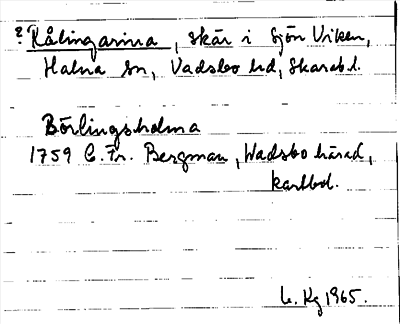 ? Kålingarina, skär i sjön Viken,
Halna sn, Vadsbo hd, Skarab.l.
Börlingsholma
1759 C. Fr. Bergman, Wadsbo härad,
kartbd.
Kg 1965.